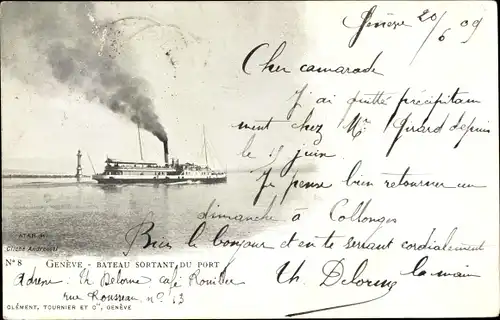 Genève 20/6 09
Cher camarade
J'ai quitté précipitam
ment chez Mr Girard depuis
le 15 juin.
Je pense bien retourner un
dimanche à Collonges
Bien le bonjour et en te serrant cordialement
la main
Ch. Delorme
ATAR
Cliché Andreossi
N° 8 GENÈVE - BATEAU SORTANT DU PORT
Adresse: Ch Delorme café
rue Rousseau n° 13
CLÉMENT, TOURNIER ET Cie, GENÈVE